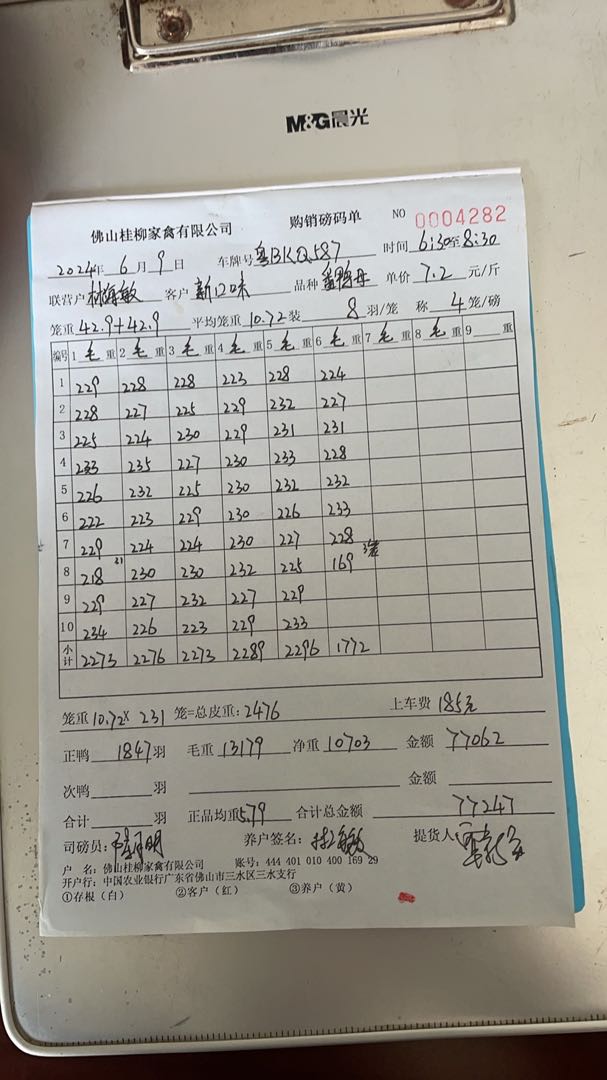 M&G晨光
佛山桂柳家禽有限公司 购销磅码单 NO 0004282
2024年 6月 9日 车牌号粤BKQ587 时间 6:30至8:30
联营户林海敏 客户 新口味 品种 番鸭母 单价 7.2 元/斤
笼重42.9+42.9 平均笼重10.72装 8 羽/笼 称 4 笼/磅
编号 1 毛 重 2 毛 重 3 毛 重 4 毛 重 5 毛 重 6 毛 重 7 毛 重 8 毛 重 9 重
1 229 228 228 223 228 224
2 228 227 225 229 232 227
3 225 224 230 229 231 231
4 233 235 227 230 233 228
5 226 232 225 230 232 232
6 222 223 229 230 226 233
7 229 224 224 230 227 228
8 218 31 230 230 232 225 169 3笼
9 229 227 232 227 229
10 234 226 223 229 233
小计 2273 2276 2273 2289 2296 1772
笼重10.72× 231 笼=总皮重:2476 上车费 185元
正鸭 1847羽 毛重13179 净重10703 金额 77062
次鸭 羽 金额
合计 羽 正品均重5.79 合计总金额 77247
司磅员: 养户签名: 林海敏 提货人
户 名:佛山桂柳家禽有限公司 账号:444 401 010 400 169 29
开户行:中国农业银行广东省佛山市三水区三水支行
①存根(白) ②客户(红) ③养户(黄)